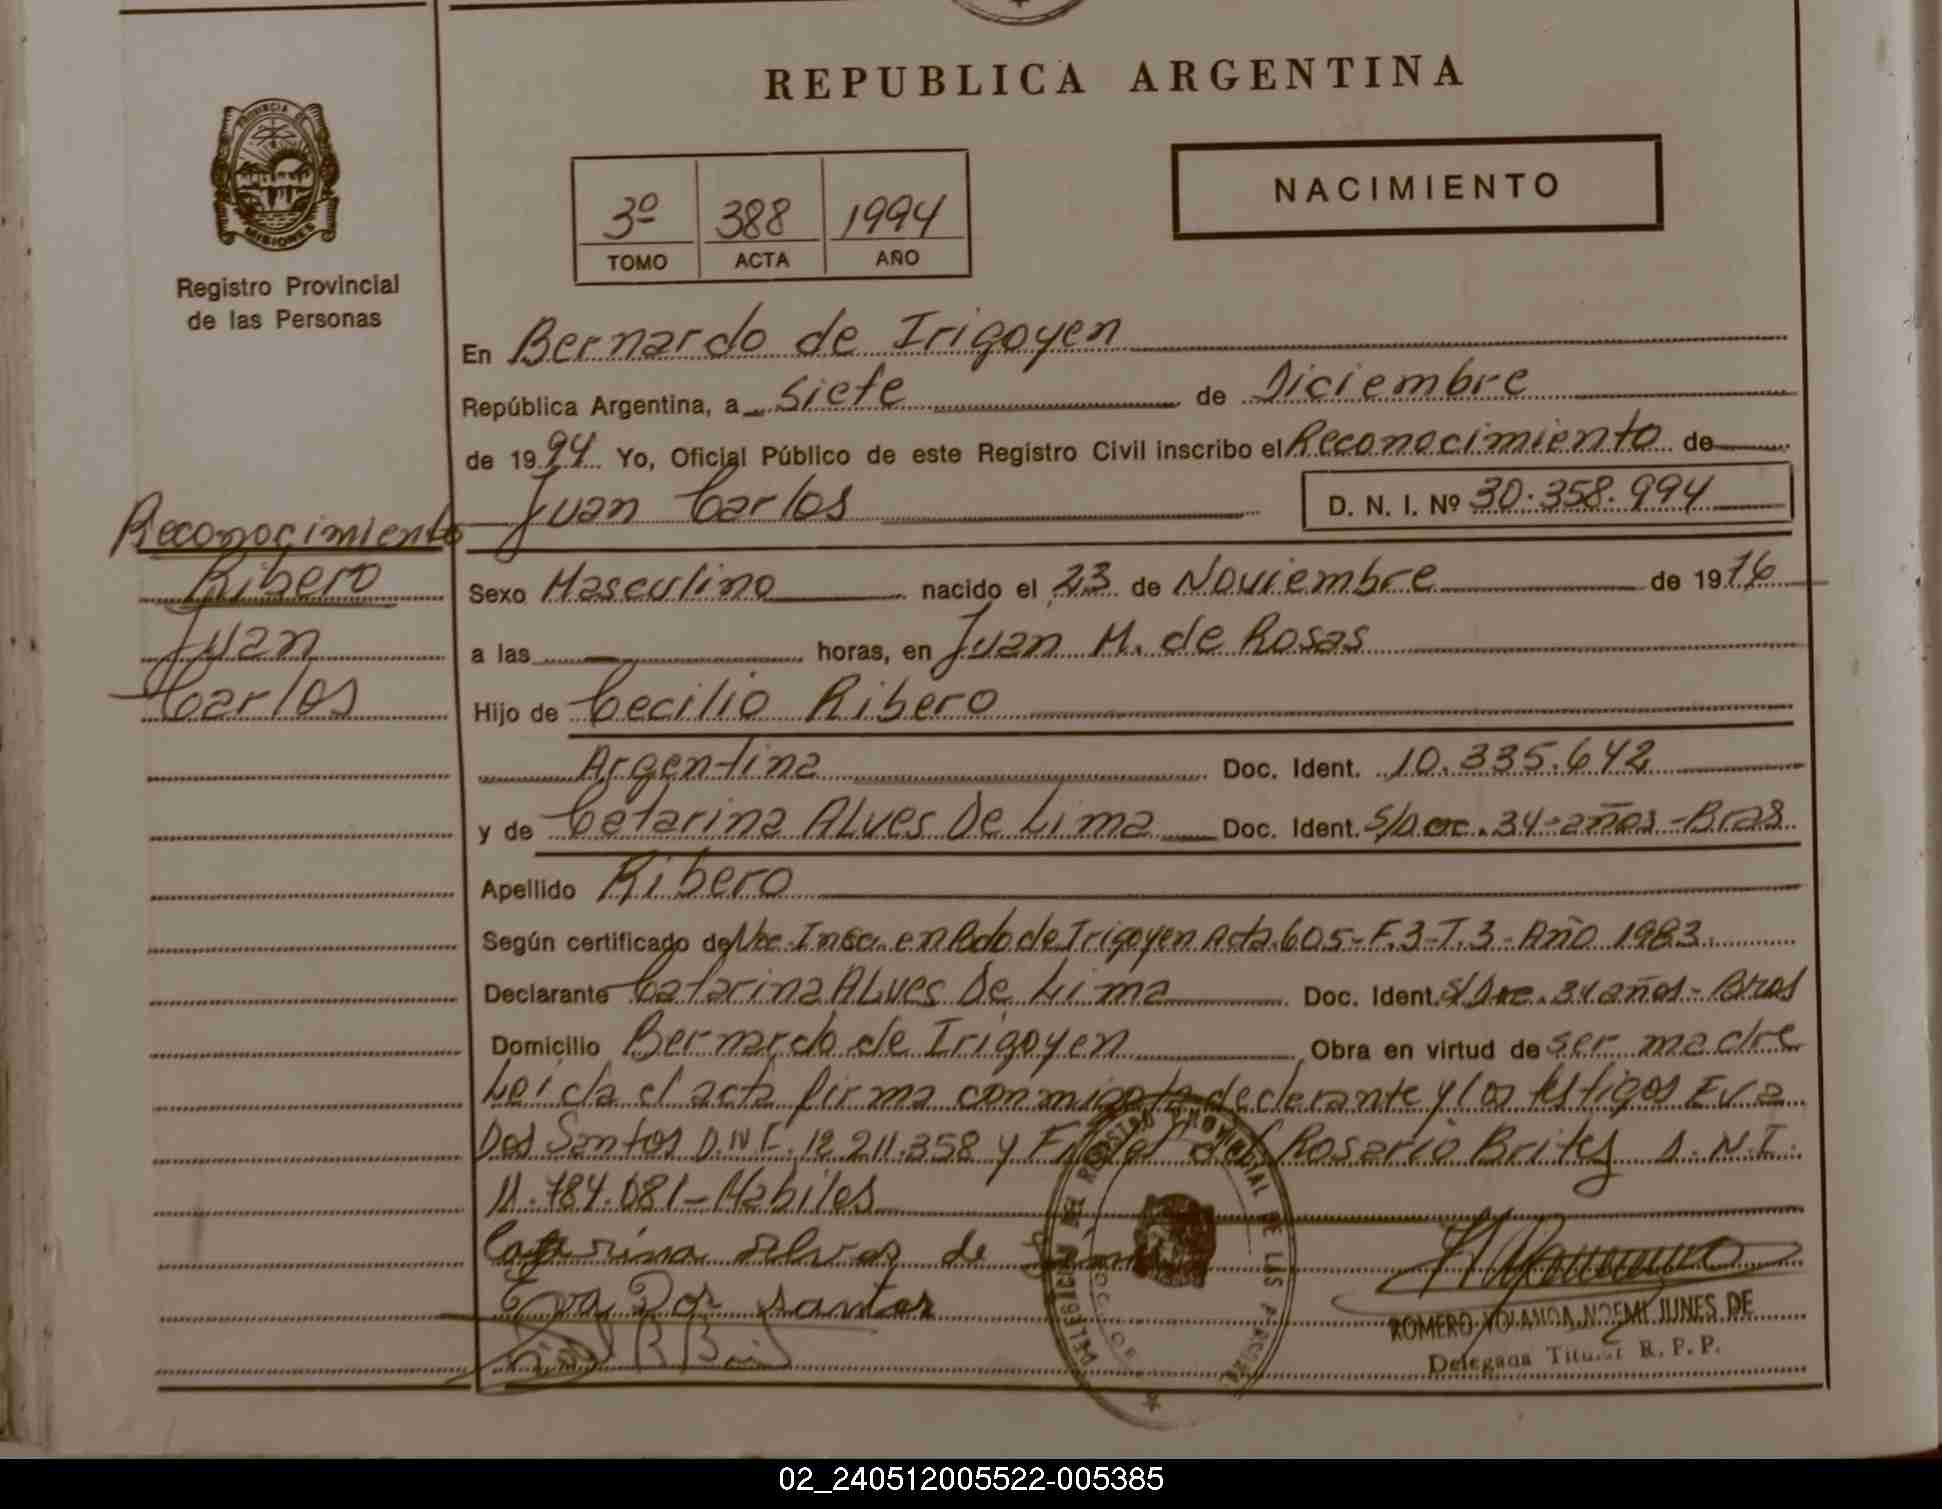 REPUBLICA ARGENTINA
PROVINCIA DE
MISIONES
Registro Provincial
de las Personas
NACIMIENTO
3º 388 1994
TOMO ACTA AÑO
En Bernardo de Irigoyen
República Argentina, a siete de Diciembre
de 1994 Yo, Oficial Público de este Registro Civil inscribo el Reconocimiento de
Juan Carlos D. N. I. Nº 30.358.994
Reconocimiento
Ribero
Juan
Carlos
Sexo Masculino nacido el 23 de Noviembre de 1976
a las horas, en Juan M. de Rosas
Hijo de Cecilio Ribero
Argentina Doc. Ident. 10.335.642
y de Catarina ALves De Lima Doc. Ident. S/Doc. 34-años-Bras
Apellido Ribero
Según certificado de Insc. en Bdo de Irigoyen Acta 605-F.3-T.3-Año 1983
Declarante Catarina ALves De Lima Doc. Ident. S/Doc. 34 años-Bras
Domicilio Bernardo de Irigoyen Obra en virtud de ser madre
Leida el acta firma conmigo la declarante y los testigos Eva
Dos Santos D.N.I. 12.211.358 y del Rosario Britez D.N.I.
11.784.081-Habiles
Catarina alves de Lima
Eva Dos santos
ROMERO YOLANDA NOEMI JUNES DE
Delegada Titular R. P. P.
DELEGACION DEL REGISTRO PROVINCIAL DE LAS PERSONAS
02_240512005522-005385